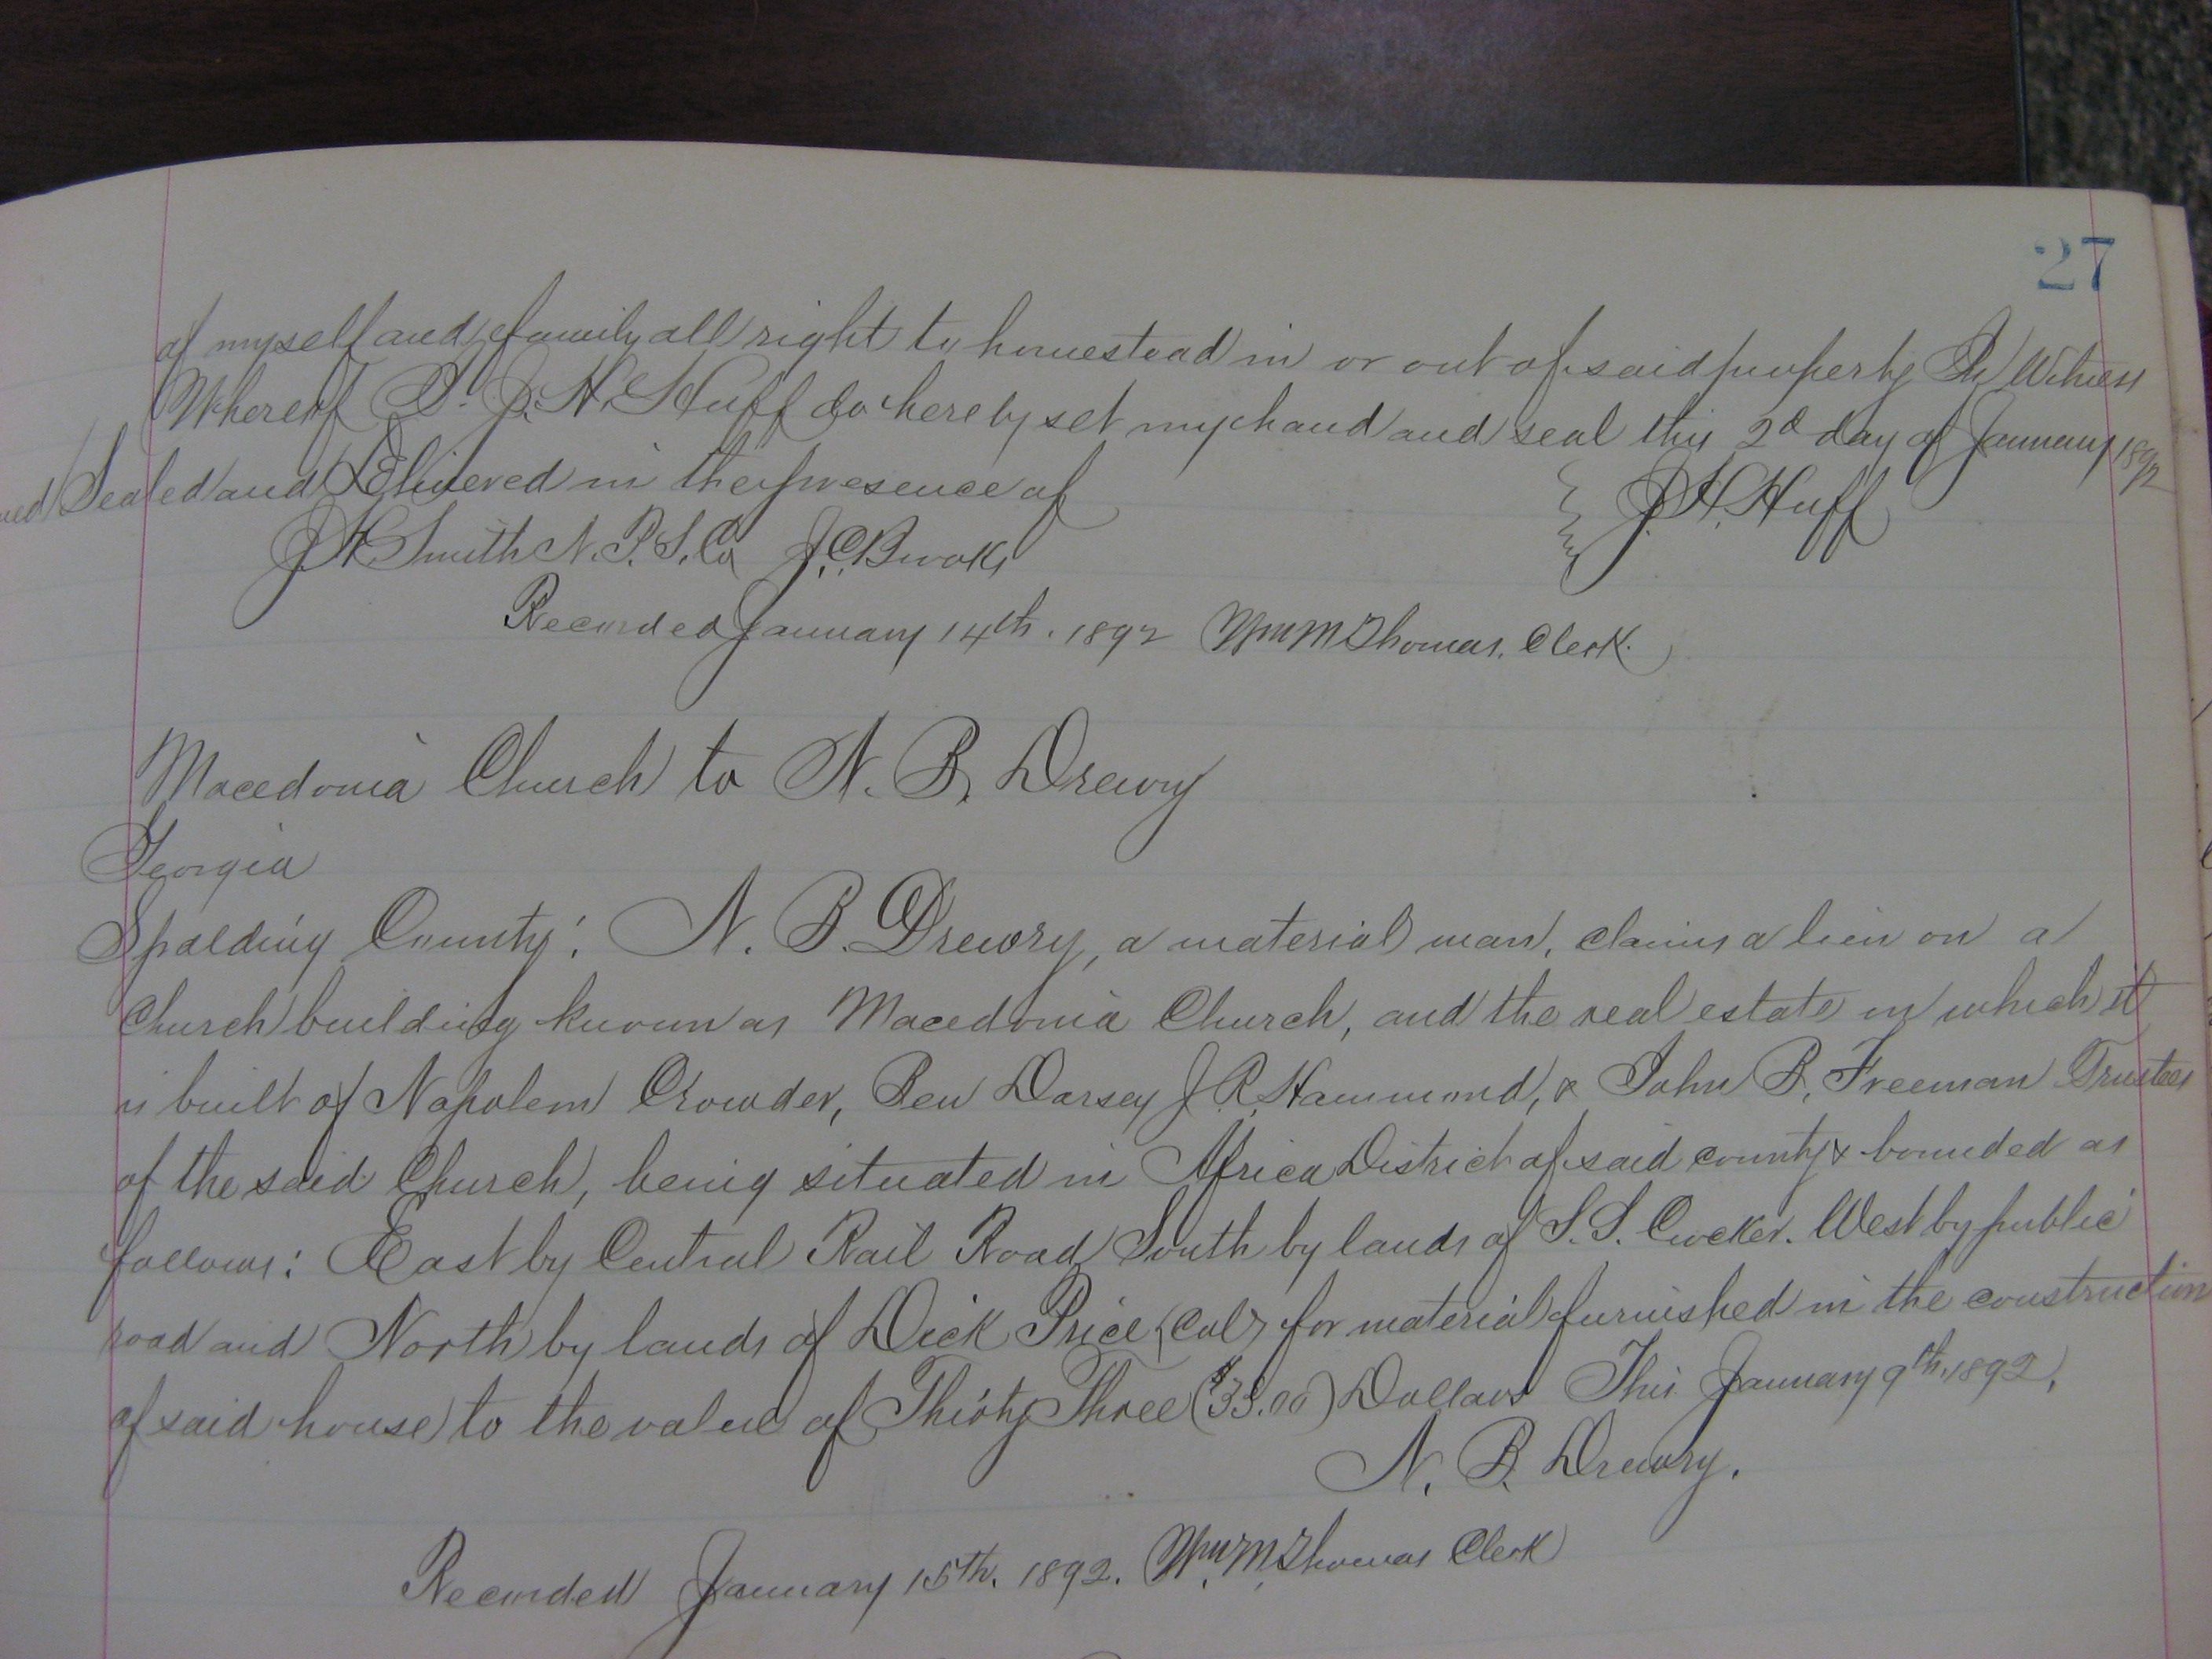 27
of myself and family all right to homestead in or out of said property In Witness
Whereof I. J. H. Huff do hereby set my hand and seal this 2d day of January 1892
ned Sealed and Delivered in the presence of J. H. Huff
J. H. Smith N. P. S. Co J. C. Brooks
Recorded January 14th. 1892 Wm M Thomas. Clerk.
Macedonia Church to N. B. Drewry
Georgia
Spalding County: N. B. Drewry, a material man, claims a lien on a
Church building known as Macedonia Church, and the real estate on which it
is built of Napoleon Crowder, Ben Dorsey J. R. Hammond, & John B. Freeman Trustees
of the said Church, being situated in Africa District of said county & bounded as
follows: East by Central Rail Road South by lands of S. S. Crocker. West by public
road and North by lands of Dick Price (Col) for material furnished in the construction
of said house to the value of Thirty Three ($33.00) Dollars This January 9th, 1892,
N. B. Drewry.
Recorded January 15th. 1892. Wm. M. Thomas Clerk